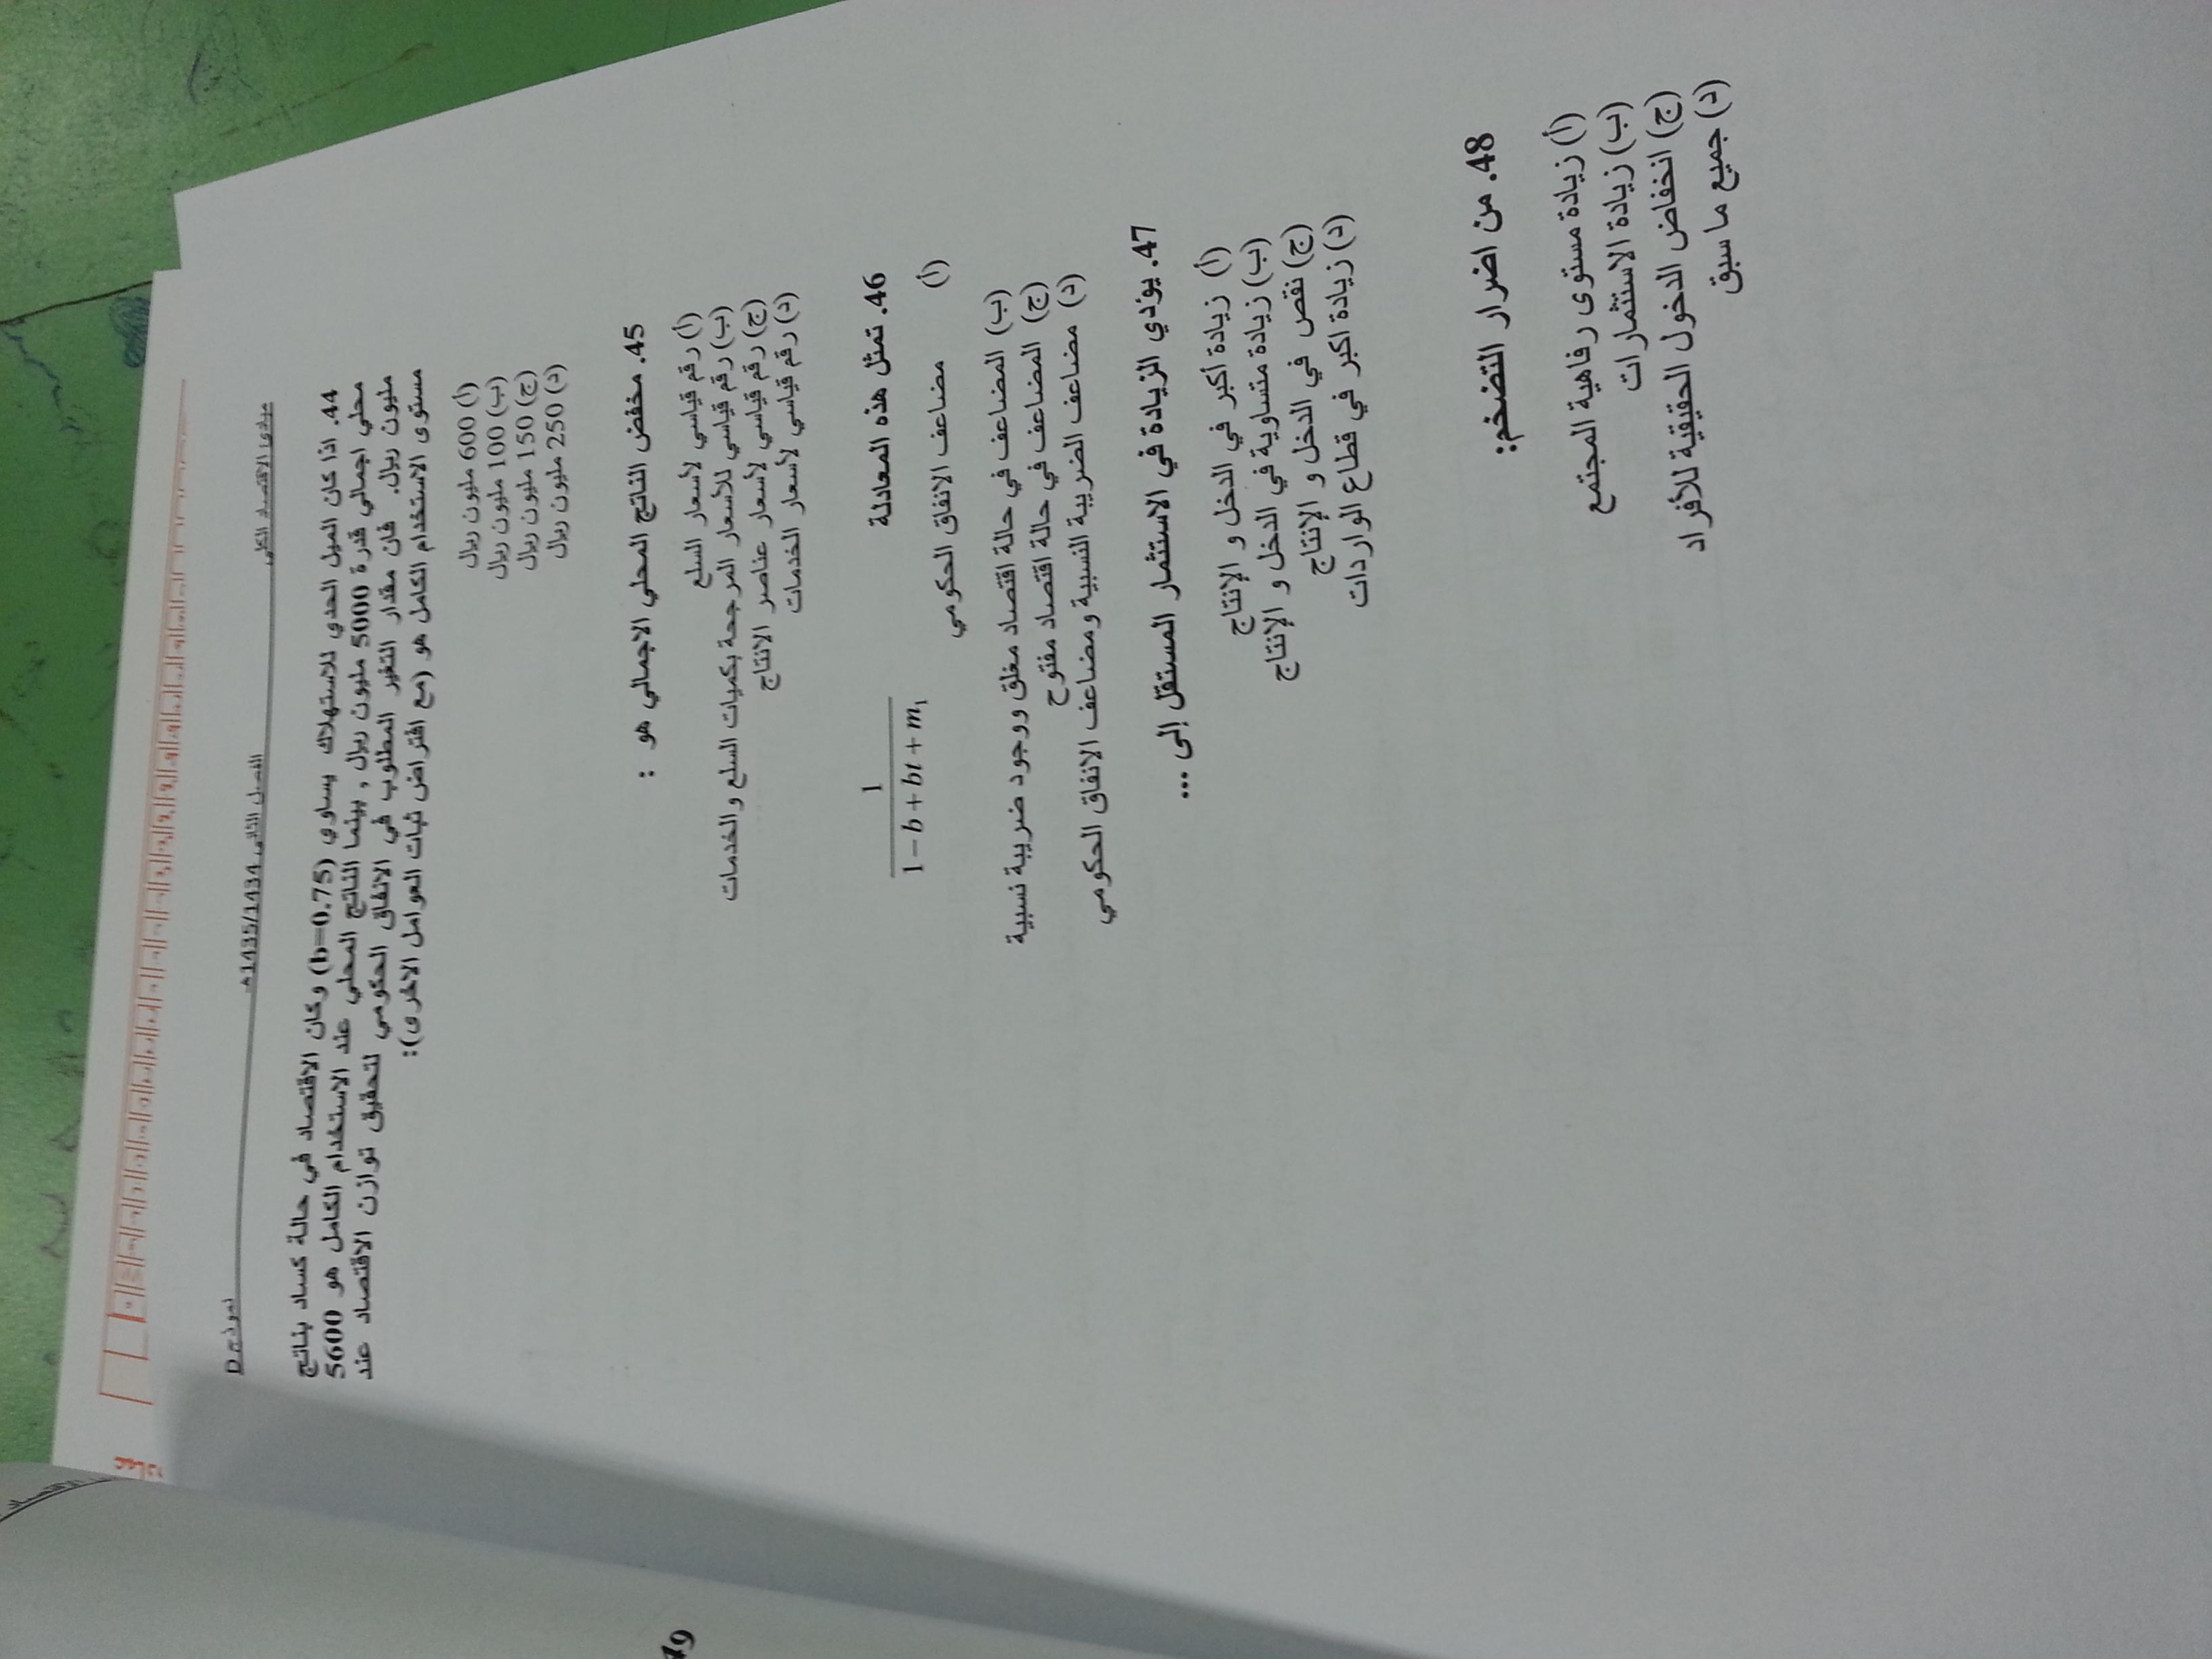 مبادئ الاقتصاد الكلي الفصل الثاني 1435/1434هـ نموذج D
44. اذا كان الميل الحدي للاستهلاك يساوي (b=0.75) وكان الاقتصاد في حالة كساد بناتج
محلي اجمالي قدرة 5000 مليون ريال , بينما الناتج المحلي عند الاستخدام الكامل هو 5600
مليون ريال. فان مقدار التغير المطلوب في الانفاق الحكومي لتحقيق توازن الاقتصاد عند
مستوى الاستخدام الكامل هو (مع افتراض ثبات العوامل الاخرى):
أ) 600 مليون ريال
ب) 100 مليون ريال
ج) 150 مليون ريال
د) 250 مليون ريال
45. مخفض الناتج المحلي الاجمالي هو :
أ) رقم قياسي لأسعار السلع
ب) رقم قياسي للأسعار المرجحة بكميات السلع والخدمات
ج) رقم قياسي لأسعار عناصر الانتاج
د) رقم قياسي لأسعار الخدمات
46. تمثل هذه المعادلة
1
1 − b + bt + m₁
أ) مضاعف الانفاق الحكومي
ب) المضاعف في حالة اقتصاد مغلق ووجود ضريبة نسبية
ج) المضاعف في حالة اقتصاد مفتوح
د) مضاعف الضريبة النسبية ومضاعف الانفاق الحكومي
47. يؤدي الزيادة في الاستثمار المستقل إلى ...
أ) زيادة أكبر في الدخل و الإنتاج
ب) زيادة متساوية في الدخل و الإنتاج
ج) نقص في الدخل و الإنتاج
د) زيادة اكبر في قطاع الواردات
48. من اضرار التضخم:
أ) زيادة مستوى رفاهية المجتمع
ب) زيادة الاستثمارات
ج) انخفاض الدخول الحقيقية للأفراد
د) جميع ما سبق
49